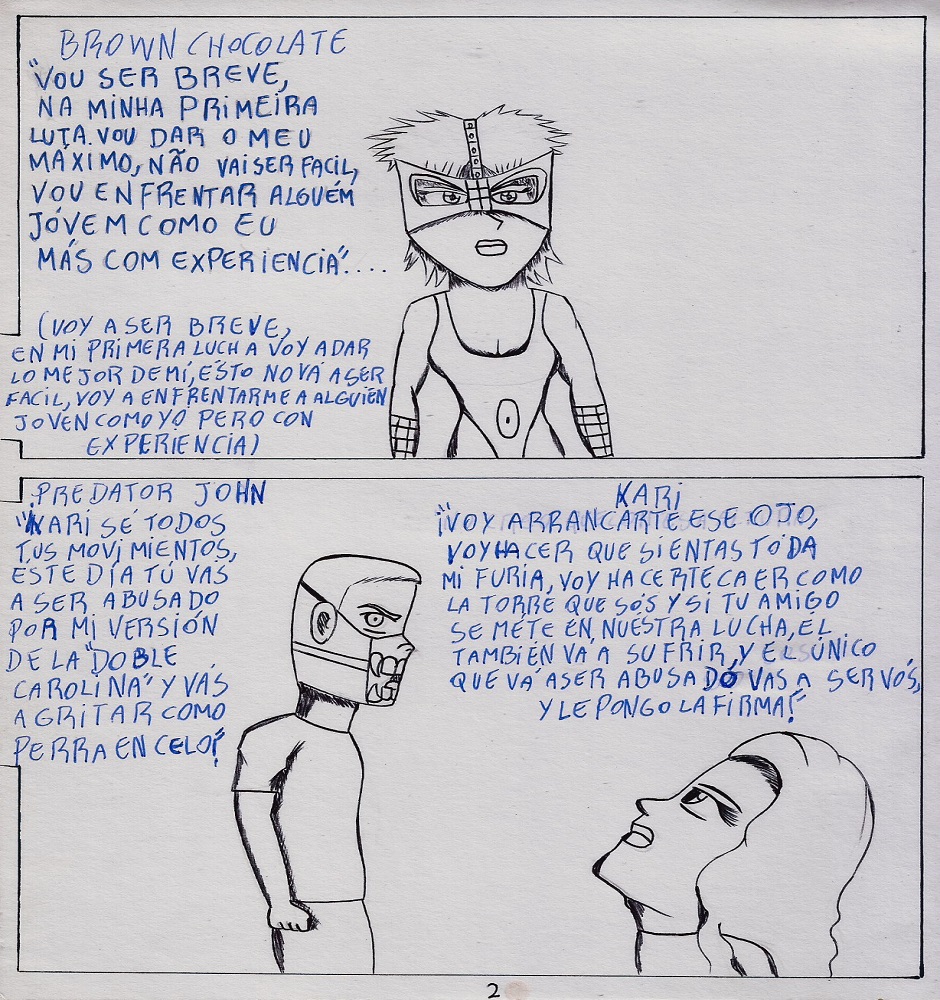 BROWN CHOCOLATE
"VOU SER BREVE,
NA MINHA PRIMEIRA
LUTA VOU DAR O MEU
MÁXIMO, NÃO VAI SER FACIL,
VOU ENFRENTAR ALGUÉM
JÓVEM COMO EU
MÁS COM EXPERIENCIA"....
(VOY A SER BREVE,
EN MI PRIMERA LUCHA VOY A DAR
LO MEJOR DE MÍ, ESTO NO VÁ A SER
FACIL, VOY A ENFRENTARME A ALGUIEN
JOVEN COMO YO PERO CON
EXPERIENCIA)
PREDATOR JOHN
"KARI SÉ TODOS
TUS MOVIMIENTOS,
ESTE DÍA TÚ VAS
A SER ABUSADO
POR MI VERSIÓN
DE LA "DOBLE
CAROLINA" Y VÁS
A GRITAR COMO
PERRA EN CELO!"
KARI
"¡VOY ARRANCARTE ESE OJO,
VOY HACER QUE SIENTAS TODA
MI FURIA, VOY HACERTE CAER COMO
LA TORRE QUE SÓS Y SI TU AMIGO
SE MÉTE EN NUESTRA LUCHA, EL
TAMBIÉN VÁ A SUFRIR, Y EL ÚNICO
QUE VÁ A SER ABUSADO VAS A SER VÓS,
Y LE PONGO LA FIRMA!"
2